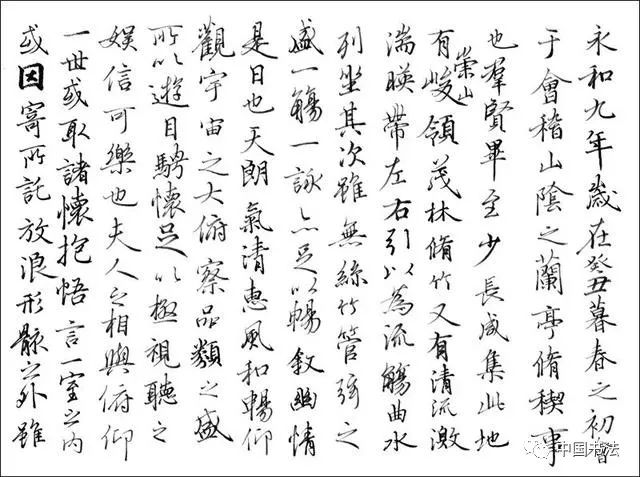 永和九年歲在癸丑暮春之初會
于會稽山陰之蘭亭脩稧事
也羣賢畢至少長咸集此地
有崇山峻領茂林脩竹又有清流激
湍暎帶左右引以為流觴曲水
列坐其次雖無絲竹管弦之
盛一觴一詠亦足以暢敘幽情
是日也天朗氣清惠風和暢仰
觀宇宙之大俯察品類之盛
所以遊目騁懷足以極視聽之
娛信可樂也夫人之相與俯仰
一世或取諸懷抱悟言一室之內
或因寄所託放浪形骸之外雖
中国书法